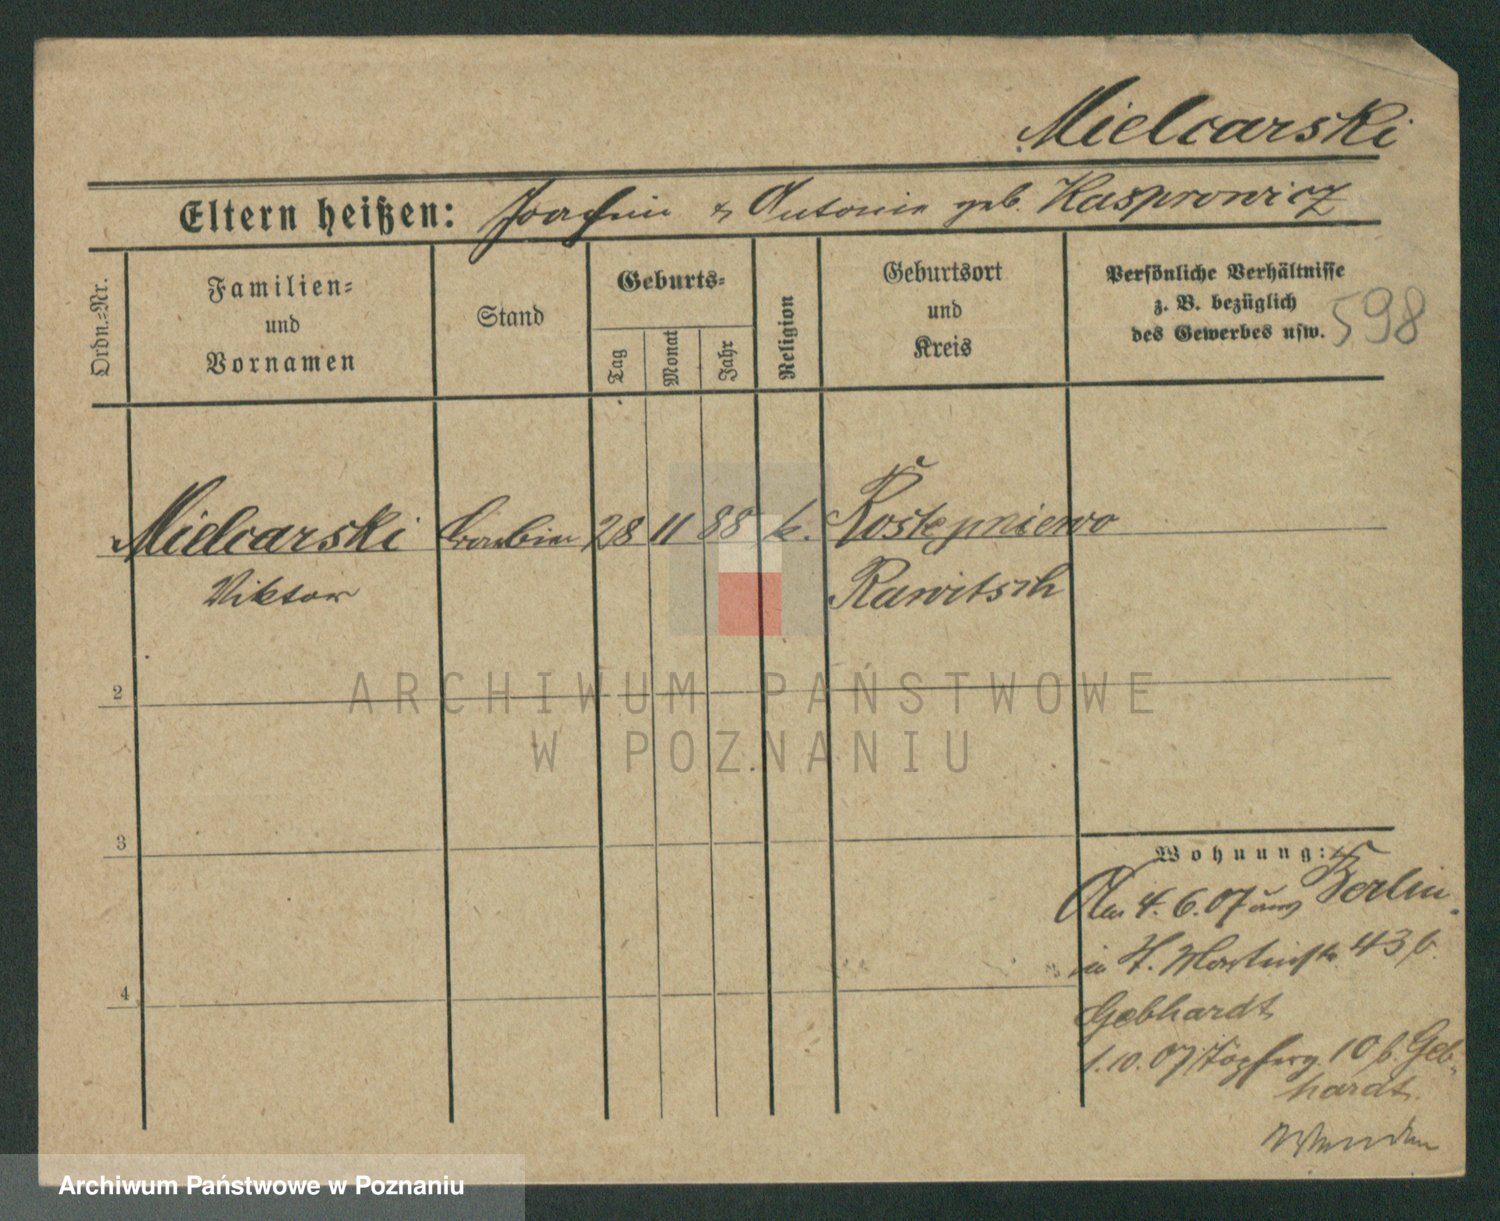 Mielcarski
Eltern heißen: Joachim & Antonie geb. Kasprowicz
Ordn.-Nr.
Familien-
und
Vornamen
Stand
Geburts-
Tag
Monat
Jahr
Religion
Geburtsort
und
Kreis
Persönliche Verhältnisse
z. B. bezüglich
des Gewerbes usw.
598
Mielcarski
28 11 88 k.
Viktor
Rawitsch
2
ARCHIWUM PAŃSTWOWE
W POZNANIU
3
Wohnung:
Am 4.6.07 aus Berlin.
in St. Martinstr. 43 b.
Gebhardt
1.10.07 Töpferg. 10 b. Geb-
hardt.
Wenden
4
Archiwum Państwowe w Poznaniu